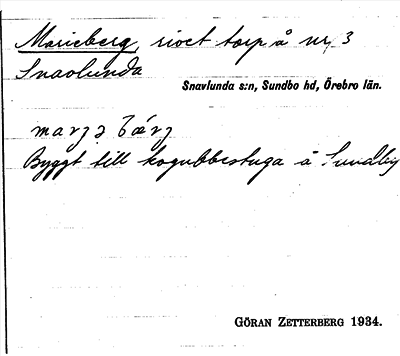 Marieberg, rivet torp å nr 3
Snavlunda
Snavlunda s:n, Sundbo hd, Örebro län.
marjə bærj
Byggt till kogubbestuga å Sundby
GÖRAN ZETTERBERG 1934.